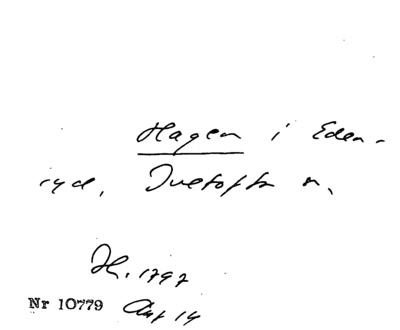 Hagen i Eden-
ryd, Ivetofta sn.
H. 1797
Nr 10779